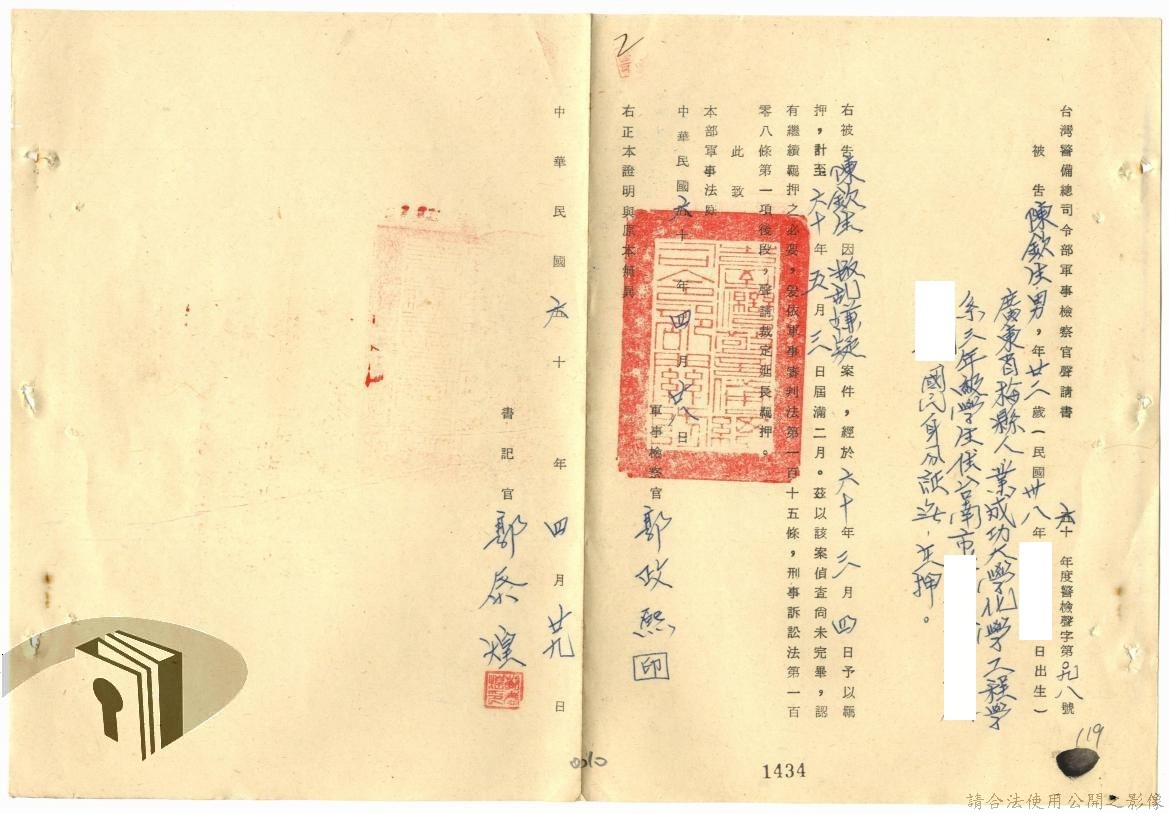 台灣警備總司令部軍事檢察官聲請書
六十年度警檢聲字第〇九八號
被告陳欽生男，年廿二歲（民國卅八年
日出生）
廣東省梅縣人業成功大學化學工程學
系三年級學生住台南市
國民身分証
在押。
右被告陳欽生因叛亂嫌疑案件，經於六十年三月四日予以羈
押，計至六十年五月三日屆滿二月。茲以該案偵查尚未完畢，認
有繼續羈押之必要，爰依軍事審判法第一百十五條，刑事訴訟法第一百
零八條第一項後段，聲請裁定延長羈押。
此致
本部軍事法庭
中華民國六十年四月廿八日
軍事檢察官郭政熙印
右正本證明與原本無異
書記官郭
中華民國六十年四月廿九日
1434
119
請合法使用公開之影像